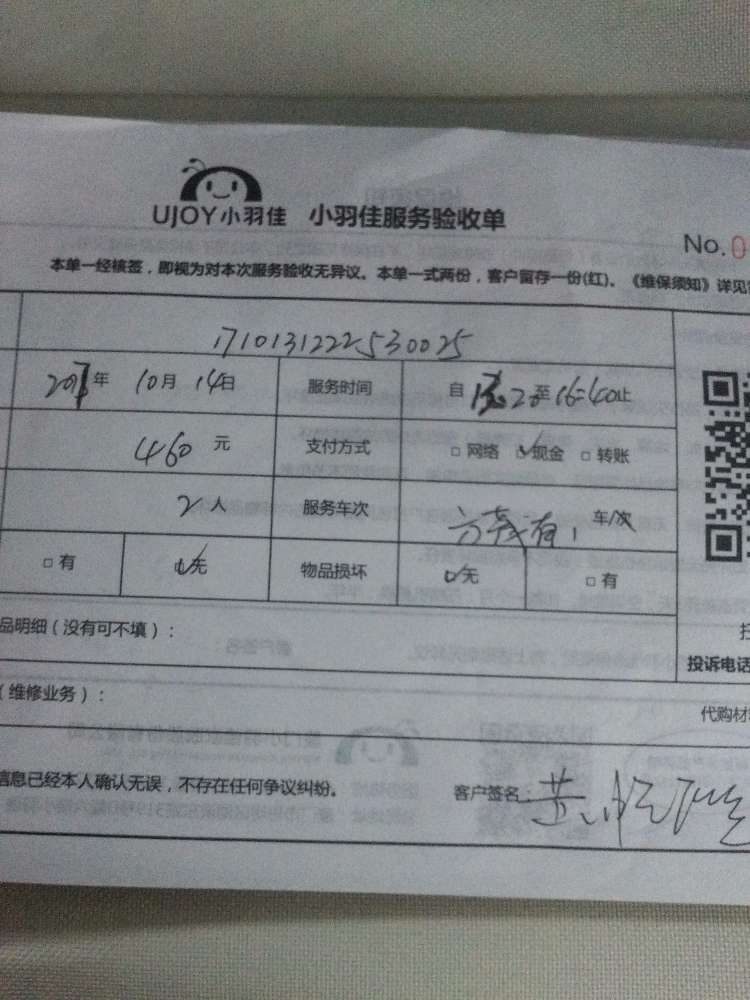 UJOY小羽佳 小羽佳服务验收单
No.0
本单一经核签，即视为对本次服务验收无异议。本单一式两份，客户留存一份(红)。《维保须知》详见
1710131222530025
2017年 10月 14日 服务时间 自 至16:40止
460 元 支付方式 □网络 ☑现金 □转账
2人 服务车次 车/次
□有 ☑无 物品损坏 ☑无 □有
品明细（没有可不填）：
投诉电话
（维修业务）：
代购材
信息已经本人确认无误，不存在任何争议纠纷。 客户签名 黄